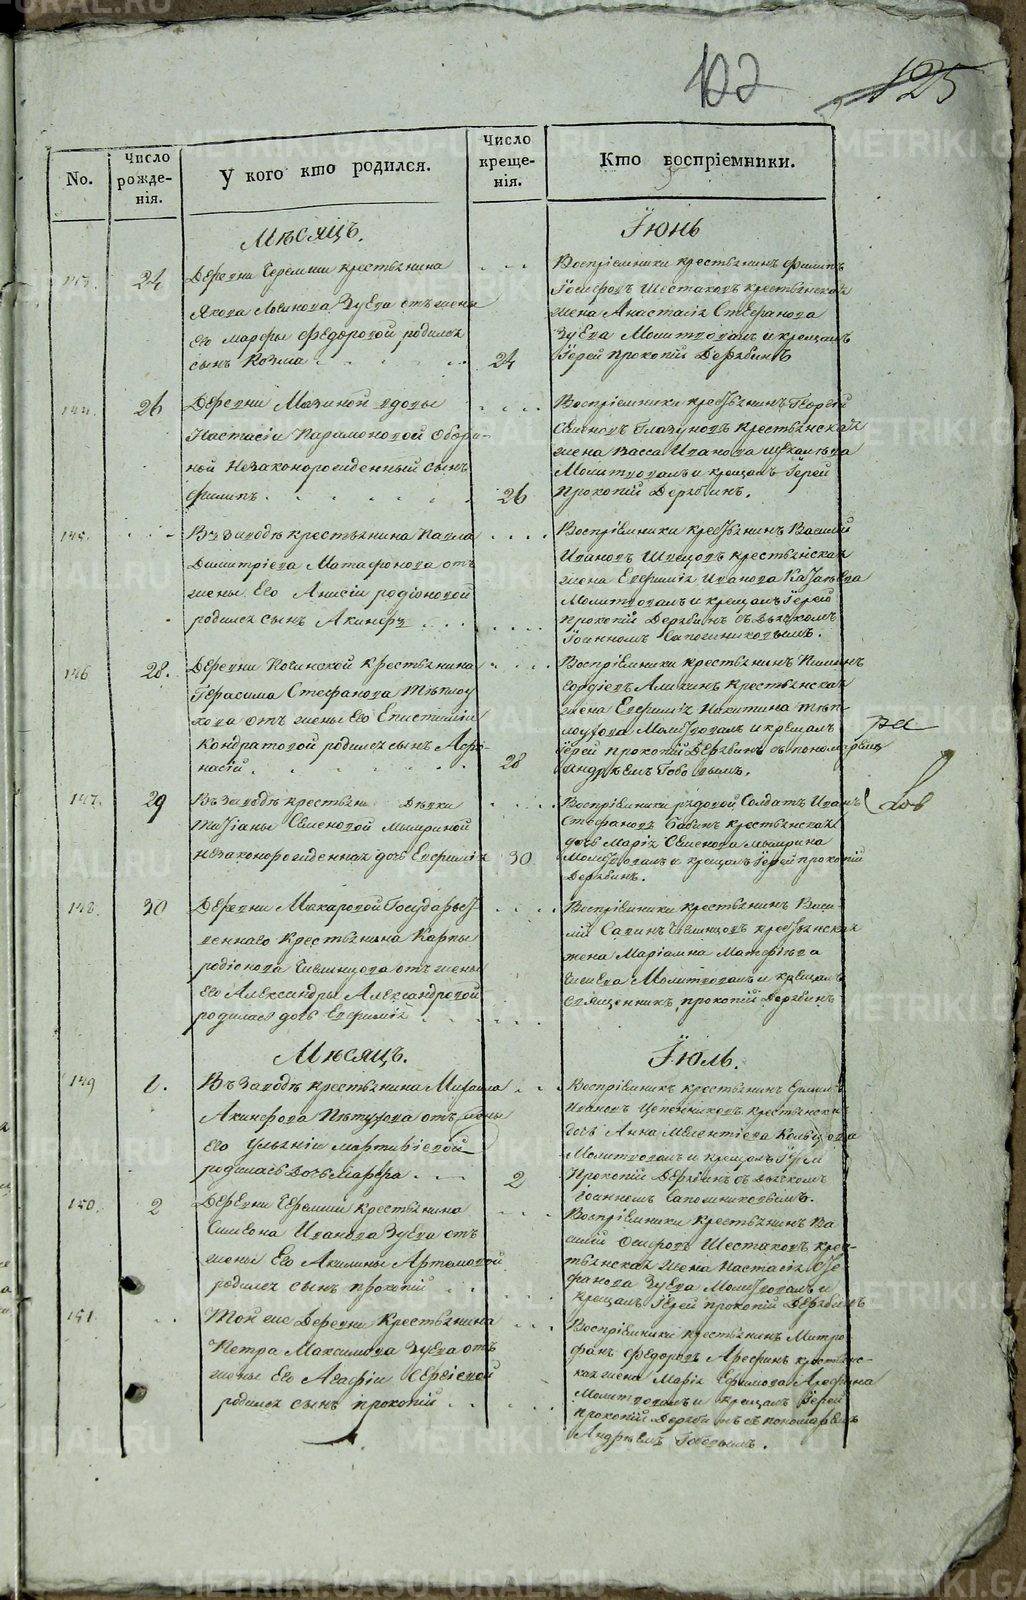 122
125
No.
Число рожде-нія.
У кого кто родился.
Число креще-нія.
Кто воспріемники.
Мѣсяцъ.
Іюнь
24
Деревни Черемши крестьянина
Якова Логинова Зуева отъ жены
его Марфы Федоровой родился
сынъ Козма
24
Воспріемники крестьянинъ Филипъ
Іосифовъ Шестаковъ крестьянская
жена Анастасія Стефанова
Зуева Молитвовалъ и крещалъ
Іерей Прокопій Дерябинъ
144.
26
Деревни Мазиной вдовы
Настасіи Парамоновой
незаконорожденный сынъ
Филипъ
26
Воспріемники крестьянинъ Георгій
Семеновъ Глазуновъ крестьянская
жена Васса Иванова
Молитвовалъ и крещалъ Іерей
Прокопій Дерябинъ.
145.
Въ заводѣ крестьянина Павла
Димитріева Матафонова отъ
жены его Анисіи родіоновой
родился сынъ Акинфъ
Воспріемники крестьянинъ Василій
Ивановъ Швецовъ крестьянская
жена Евфимія Иванова
Молитвовалъ и крещалъ Іерей
Прокопій Дерябинъ съ дьячкомъ
Іоанномъ Сапожниковымъ.
146
28.
Деревни крестьянина
Герасима Стефанова Тѣплоу
хова отъ жены его Епистиміи
Кондратовой родился сынъ Афо-
насій.
28
Воспріемники крестьянинъ
Гордѣевъ Аликинъ крестьянская
жена Евфимія Никитина тѣп-
лоухова Молитвовалъ и крещалъ
Іерей Прокопій Дерябинъ съ пономаремъ
Андрѣемъ
147.
29
Въ заводѣ крестьян дѣвки
Татіаны Семеновой Мымриной
незаконорожденная дочь Евфимія
30
Воспріемники рядовой Солдатъ Иванъ
Стефановъ Бабинъ крестьянская
дочь Марія Семенова Мымрина
Молитвовалъ и крещалъ Іерей Прокопій
Дерябинъ.
148.
30
Деревни Макаровой Государст
веннаго крестьянина Карпы
родіонова отъ жены
его Александры Александровой
родилась дочь Евфимія
Воспріемники крестьянинъ Васи-
лій Савинъ крестьянская
жена Маріамна Матфѣева
Молитвовалъ и крещалъ
Священникъ прокопій Дерябинъ
Мѣсяцъ.
Іюль.
149
1.
Въ заводѣ крестьянина Михаила
Акинфова Пѣтухова отъ жены
его Ульяніи Мартиніевой
родилась дочь Марфа
2
Воспріемники крестьянинъ
Ивановъ крестьянская
дочь Анна Мелентіева
Молитвовалъ и крещалъ Іерей
Прокопій Дерябинъ съ дьячкомъ
Іоанномъ Сапожниковымъ.
150.
2
Деревни Черемши крестьянина
Симеона Иванова Зуева отъ
жены его Акилины Артемовой
родился сынъ прокопій
Воспріемники крестьянинъ Ва
силій Осиповъ Шестаковъ крес-
тьянская жена Настасія Сте-
фанова Зуева Молитвовалъ и
крещалъ Іерей прокопій Дерябинъ
151.
Той же Деревни крестьянина
Петра Максимова Зуева отъ
жены его Агафіи Сергіевой
родился сынъ прокопій
Воспріемники крестьянинъ Митро-
фанъ Федоровъ Арефинъ крестьянс-
кая жена Марія Ефимова Арефина
Молитвовалъ и крещалъ Іерей
прокопій Дерябинъ съ пономаремъ
Андрѣемъ
METRIKI.GASO-URAL.RU